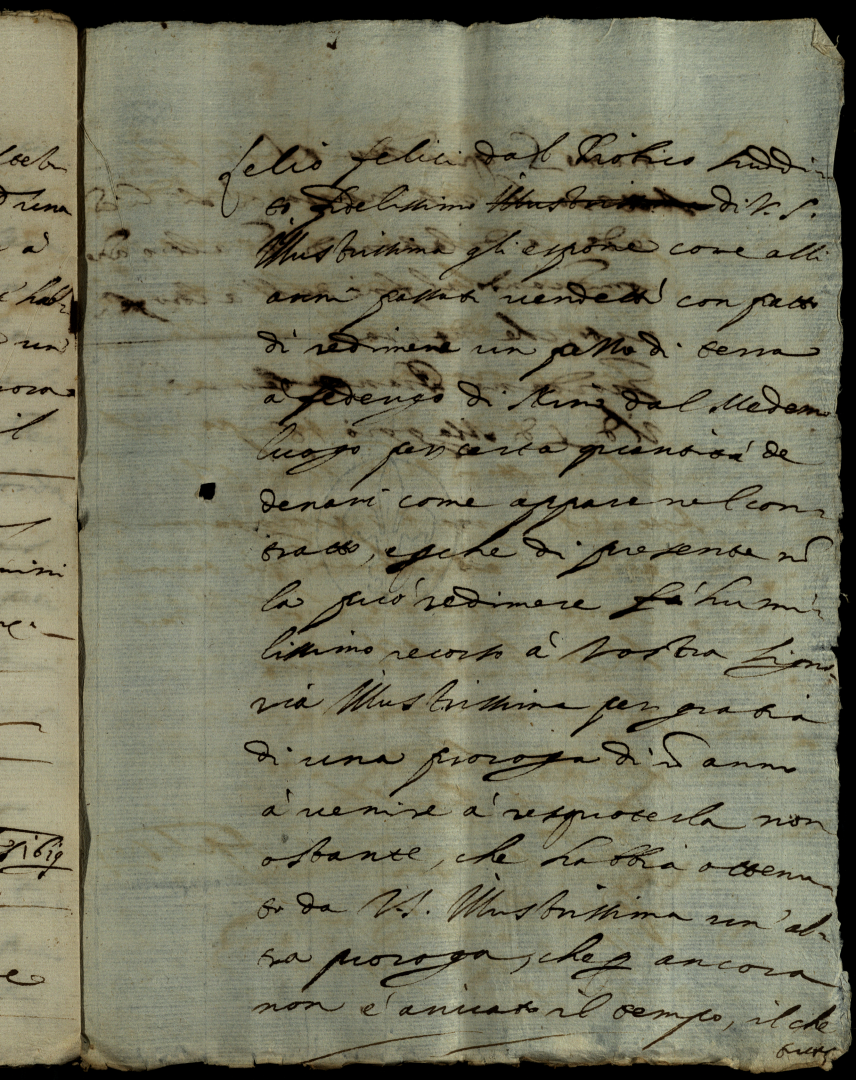 Felio felici dal Trobico suddi-
to fidelissimo Illustrissima di V. S.
Illustrissima gli espone come alli
anni passati vendette con patto
di redimere un pesso di terra
à Federigo di dal Medemo
luogo per certa quantità de
denari come appare nel con-
tratto, e perche di presente nõ
la può redimere fà humi-
lissimo recorso à Vostra Signo-
ria Illustrissima per gratia
di una proroga di ũ anno
à venire à resquoterla non
ostante, che habbia ottenu-
to da V.S. Illustrissima un' al-
tra proroga, che p ancora
non è arivato il tempo, il che
tutto